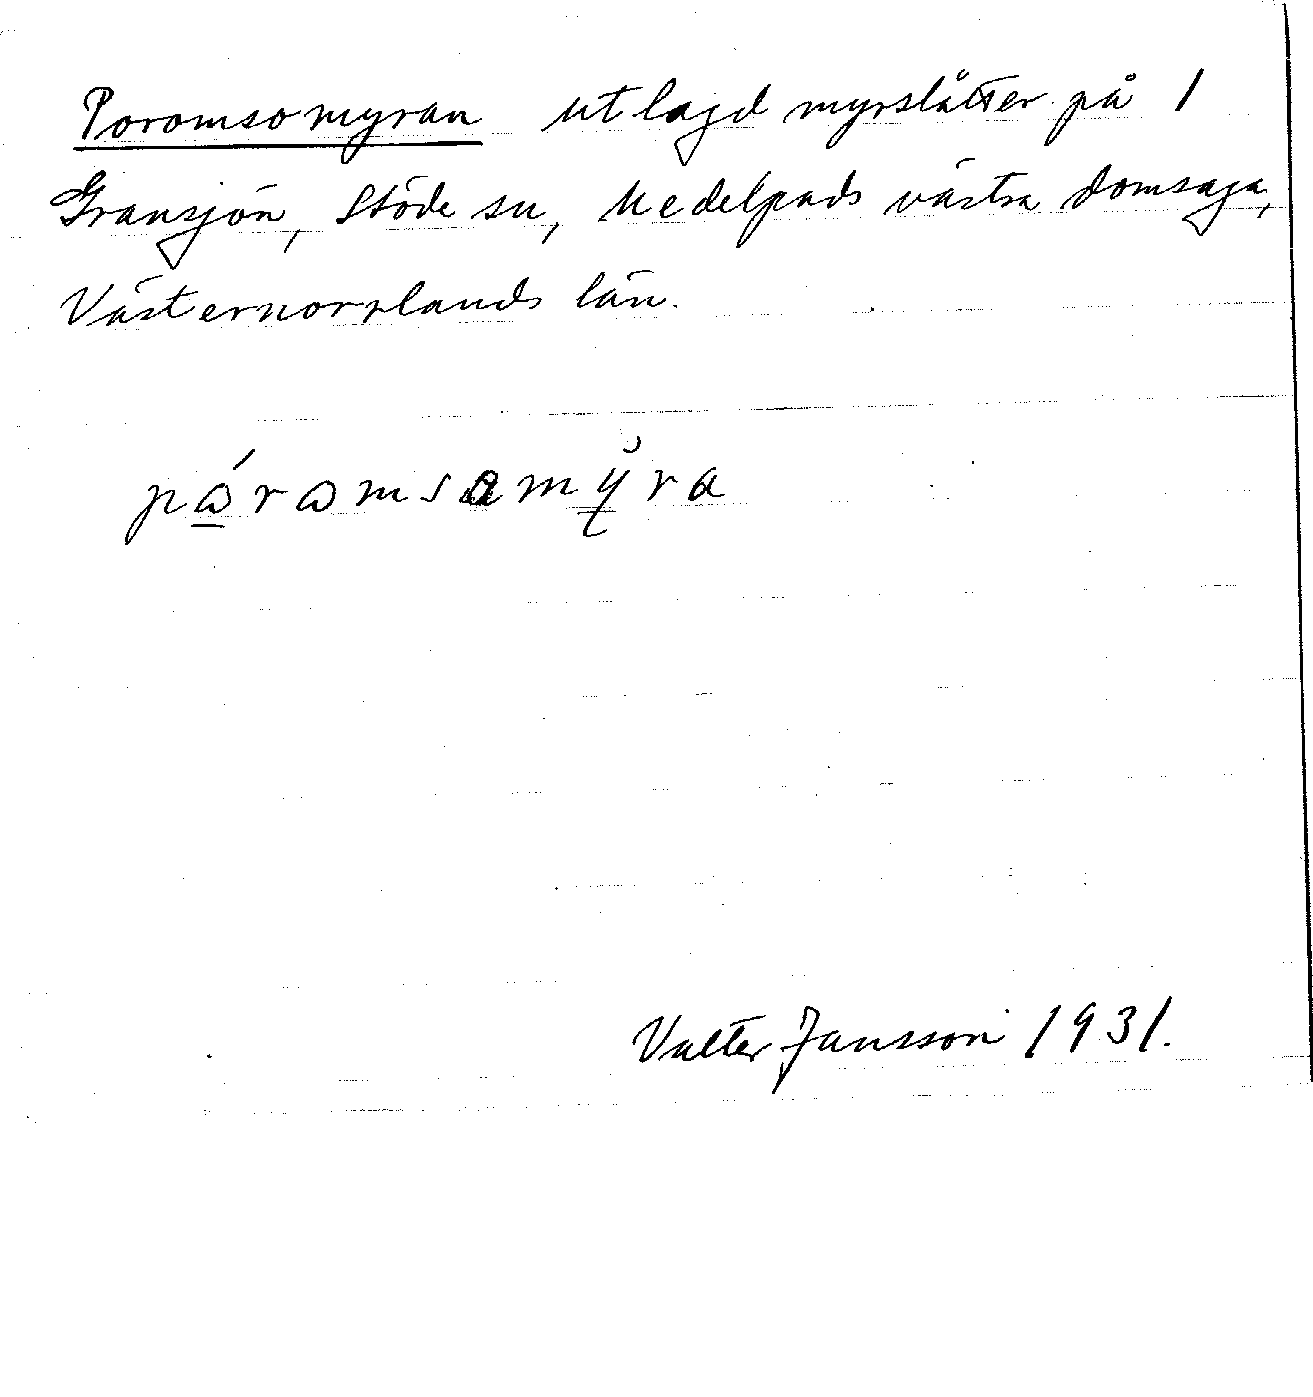 Poromsomyran utlagd myrslåtter på 1
Gransjön, Stöde sn, Medelpads västra domsaga,
Västernorrlands län.
páramsamy̆ra
Valter Jansson 1931.